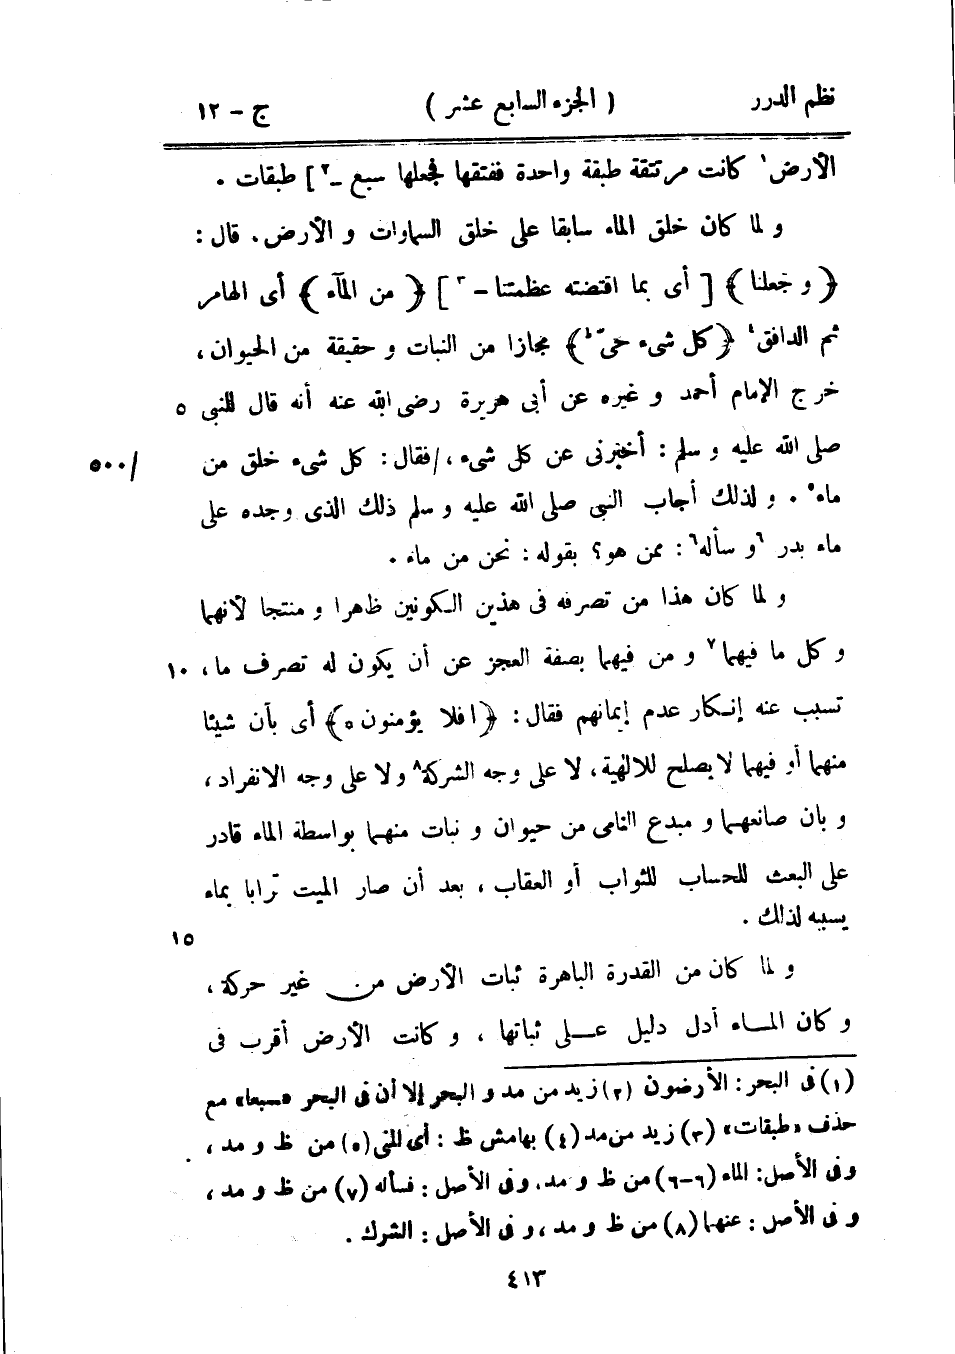 نظم الدرر ( الجزء السابع عشر ) ج - ١٢
الأرض١ كانت مرتتقة طبقة واحدة ففتقها فجعلها سبع -٢ ] طبقات .
و لما كان خلق الماء سابقا على خلق السماوات و الأرض . قال :
﴿ و جعلنا ﴾ [ أى بما اقتضته عظمتنا -٣ ] ﴿ من المآء ﴾ أى الهامر
ثم الدافق٤ ﴿ كل شىء حىّ ط ﴾ مجازا من النبات و حقيقة من الحيوان ،
خرج الإمام أحمد و غيره عن أبى هريرة رضى الله عنه أنه قال للنبى ٥
صلى الله عليه و سلم : أخبرنى عن كل شىء ، /فقال : كل شىء خلق من /٥٠٠
ماء٥ . و لذلك أجاب النبى صلى الله عليه و سلم ذلك الذى وجده على
ماء بدر ٦و سأله٦ : ممن هو؟ بقوله : نحن من ماء .
و لما كان هذا من تصرفه فى هذين الكونين ظاهرا و منتجا لأنهما
و كل ما فيهما٧ و من فيهما بصفة العجز عن أن يكون له تصرف ما ، ١٠
تسبب عنه إنكار عدم إيمانهم فقال : ﴿ افلا يؤمنون ه ﴾ أى بأن شيئا
منهما أو فيهما لا يصلح للالهية ، لا على وجه الشركة٨ ولا على وجه الانفراد ،
و بان صانعهما و مبدع النامى من حيوان و نبات منهما بواسطة الماء قادر
على البعث للحساب للثواب أو العقاب ، بعد أن صار الميت ترابا بماء
يسببه لذلك . ١٥
و لما كان من القدرة الباهرة ثبات الأرض من غير حركة ،
و كان المـاء أدل دليل عـلى ثباتها ، و كانت الأرض أقرب فى
(١) فى البحر : الأرضون (٢) زيد من مد و البحر إلا أن فى البحر «سبعا» مع
حذف «طبقات» (٣) زيد من مد (٤) بهامش ظ : أى المنى (٥) من ظ و مد ،
و فى الأصل : الماء (٦-٦) من ظ و مد . و فى الأصل : فسأله (٧) من ظ و مد ،
و فى الأصل : عنهما (٨) من ظ و مد ، و فى الأصل : الشرك .
٤١٣